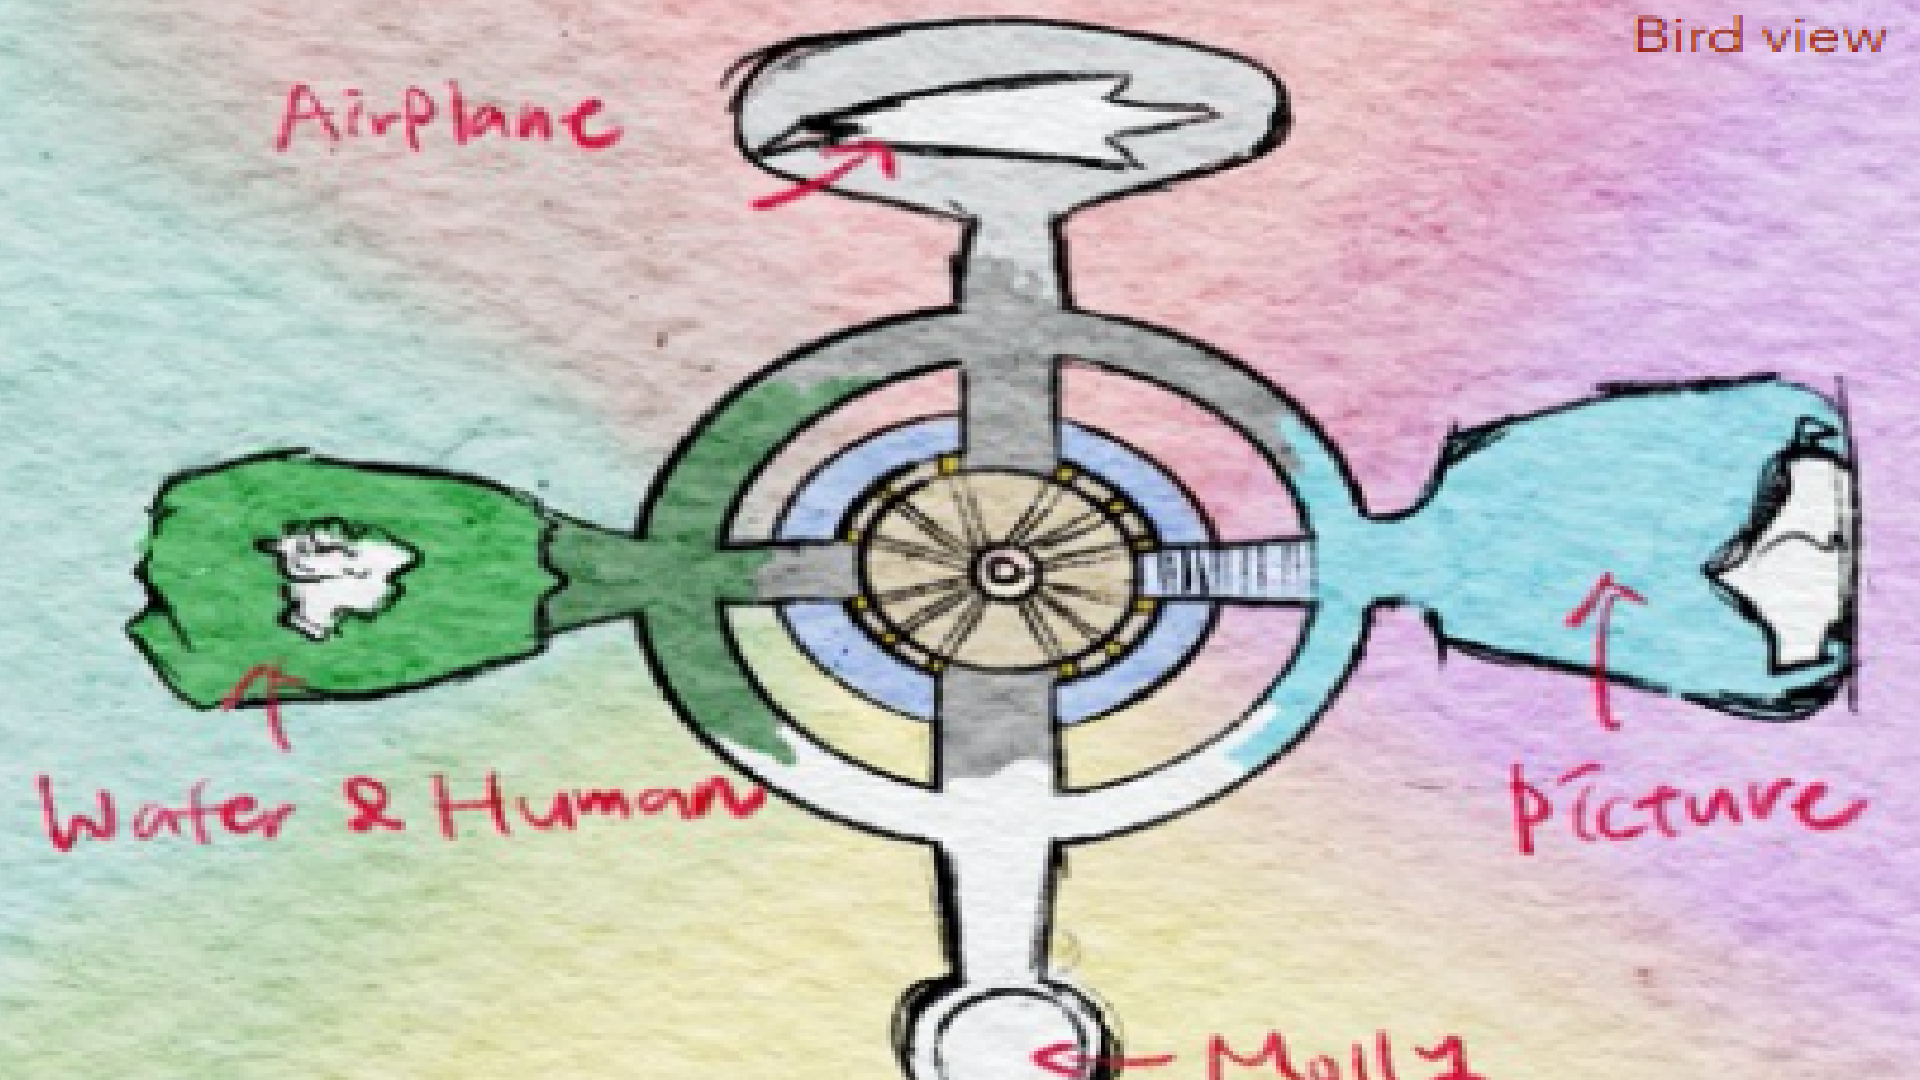 Bird view
Airplane
Water & Human
Picture
Molly